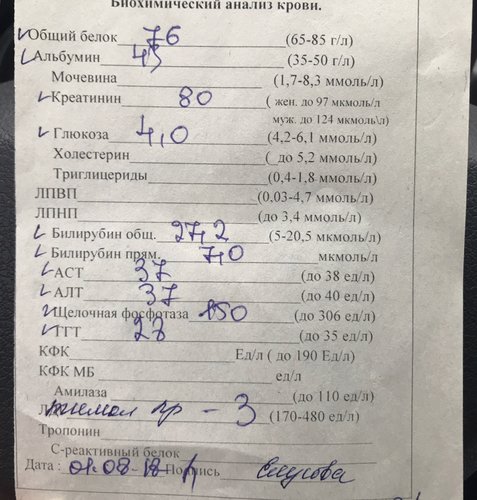 Биохимический анализ крови.
Общий белок 76 (65-85 г/л)
Альбумин 45 (35-50 г/л)
Мочевина (1,7-8,3 ммоль/л)
Креатинин 80 ( жен. до 97 мкмоль/л
муж. до 124 мкмоль\л)
Глюкоза 4,0 (4,2-6,1 ммоль/л)
Холестерин ( до 5,2 ммоль/л)
Триглицериды (0,4-1,8 ммоль/л)
ЛПВП (0,03-4,7 ммоль/л)
ЛПНП (до 3,4 ммоль/л)
Билирубин общ. 27,2 (5-20,5 мкмоль/л)
Билирубин прям. 7,0 мкмоль/л
АСТ 37 (до 38 ед/л)
АЛТ 37 (до 40 ед/л)
Щелочная фосфотаза 150 (до 306 ед/л)
ГГТ (до 35 ед/л)
КФК Ед/л ( до 190 Ед/л)
КФК МБ ед/л
Амилаза (до 110 ед/л)
тимол пр - 3 (170-480 ед/л)
Тропонин
С-реактивный белок
Дата : 01.08-18 Подпись